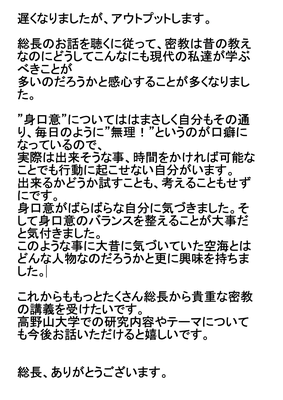 遅くなりましたが、アウトプットします。
総長のお話を聴くに従って、密教は昔の教え
なのにどうしてこんなにも現代の私達が学ぶ
べきことが
多いのだろうかと感心することが多くなりまし
た。
”身口意”についてははまさしく自分もその通
り、毎日のように”無理！”というのが口癖に
なっているので、
実際は出来そうな事、時間をかければ可能な
ことでも行動に起こせない自分がいます。
出来るかどうか試すことも、考えることもせず
にです。
身口意がばらばらな自分に気づきました。そ
して身口意のバランスを整えることが大事だ
と気付きました。
このような事に大昔に気づいていた空海とは
どんな人物なのだろうかと更に興味を持ちま
した。
これからももっとたくさん総長から貴重な密教
の講義を受けたいです。
高野山大学での研究内容やテーマについて
も今後お話いただけると嬉しいです。
総長、ありがとうございます。